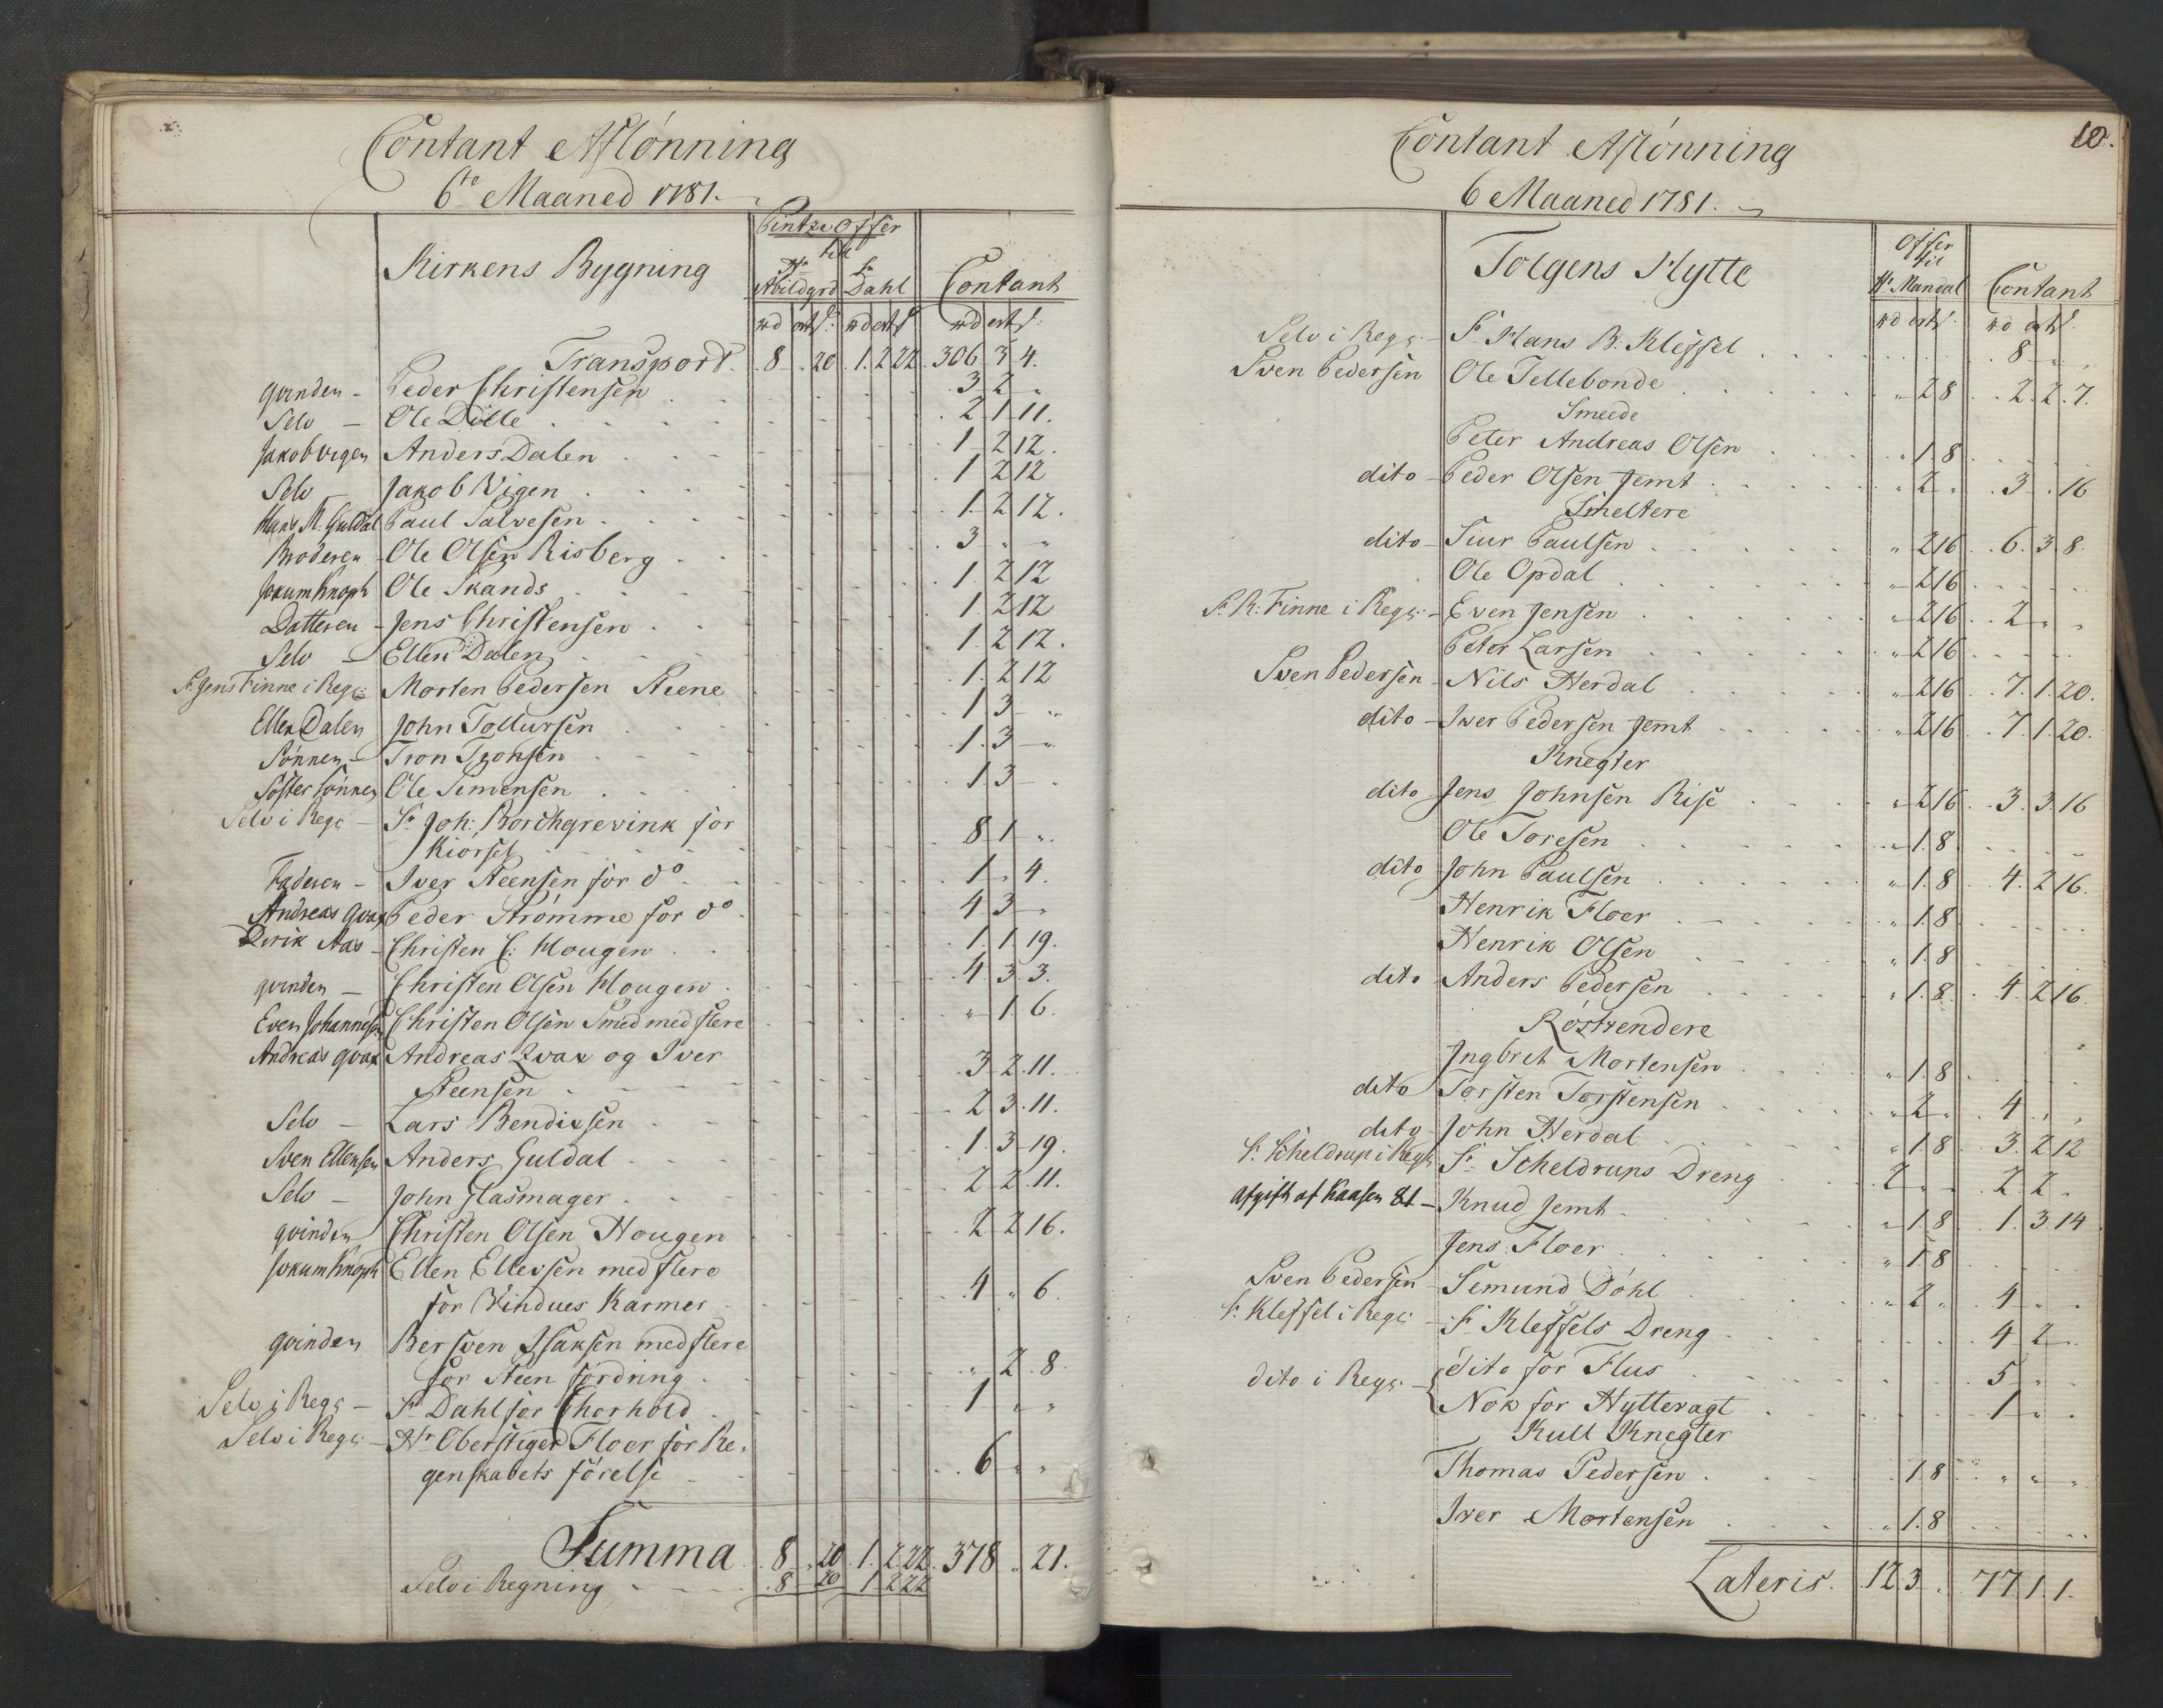 Contant Aflønning
6te Maaned 1781.
Kirkens Bygning
Pintze Offer
til
Hr Abildgrd Sr Dahl Contant
rd ort s: rd ort s rd ort s:
Transport. 8 " 20 1. 2 22 306 3 4.
qvinden - Peder Christensen 3 2 "
Selv - Ole Dølle 2 1 11.
Jakob Vigen Anders Dalen 1 2 12.
Selv - Jakob Vigen 1 2 12
Hans M. Guldal Paul Salvesen 1. 2 12.
Broderen - Ole Olsen Risberg 3 " "
Jokum Knoph Ole Skands 1 2 12
Datteren - Jens Christensen 1 2 12
Selv - Ellen Dalen 1 2 12.
Sr Jens Finne i Regg: Morten Pedersen Steene 1 2 12
Ellen Dalen John Tollursen 1 3 "
Sønnen - Tron Tronsen 1. 3 "
Søster Sønnen Ole Simensen 1 3
Selv i Regg - Sr Joh: Borchgrevink for
Kiørsel 8 1 "
Faderen - Iver Steensen for do 1 " 4.
Andreas Qvax Peder Strømme for do 4 3 "
Erik Aas - Christen C: Hougen 1. 1 19.
qvinden - Christen Olsen Hougen 4 3. 3.
Even Johannesen Christen Olsen Smed med flere " 1 6.
Andreas Qvax Andreas Qvax og Iver
Steensen 3 2. 11.
Selv - Lars Bendixsen 2 3. 11.
Sven Ellensen Anders Guldal 1 3 19.
Selv - John Glasmager 2 2 11.
qvinden Christen Olsen Hougen 2 2 16.
Jokum Knoph Ellen Ellevsen med flere
for Vindues Karmer 4 " 6.
qvinden Bersven Isaksen med flere
for Steen fordring " 2. 8.
Selv i Regg - Sr Dahl for Chorhold 1 " "
Selv i Regg: - Hr Oberstiger Floer for Re-
genskabets førelse 6 " "
Summa 8 " 20 1. 2 22 378 " 21.
Selv i Regning 8 20 1 2 22
10.
Contant Aflønning
6 Maaned 1781.
Tolgens Hytte
Offer
til
Hr Mandal Contant
rd ort s. rd ort s.
Selv i Regg: - Sr Hans B: Kleffel 8 "
Sven Pedersen Ole Tellebonde " 2 8 2. 2. 7.
Smeede
Peter Andreas Olsen " 1. 8
dito - Peder Olsen Jemt " 2 " 3 " 16
Smeltere
dito - Siur Paulsen " 2 16 6. 3. 8.
Ole Opdal " 2 16
Sr R: Finne i Regg: - Even Jensen " 2 16 2 " "
Peter Larsen " 2 16
Sven Pedersen - Nils Herdal " 2 16 7. 1. 20.
dito - Iver Pedersen Jemt " 2 16 7. 1. 20.
Knegter
dito Jens Johnsen Rise " 2 16 3. 3. 16
Ole Toresen " 1. 8
dito John Paulsen " 1. 8 4. 2 16.
Henrik Floer " 1. 8
Henrik Olsen " 1. 8
dito Anders Pedersen " 1. 8 4. 2 16
Røstvendere
Ingbret Mortensen " 1. 8
dito Torsten Torstensen " 2 " 4 " "
dito - John Herdal " 1. 8 3. 2 12
Sr Scheldrup i Regg Sr Scheldrups Dreng 2 " " 2 2 "
Afgift af Kaasen 81 - Knud Jemt " 1. 8 1. 3. 14
Jens Floer " 1 8
Sven Pedersen - Semund Døhl " 2 " 4 "
Sr Kleffel i Regg: - Sr Kleffels Dreng 4 2
dito i Regg: - dito for Flus 5 "
Nok for Hyttevagt 1 "
Kull Knegter
Thomas Pedersen 1. 8 " " "
Iver Mortensen " 1. 8
Lateris. 12 3 " 77 1. 1.